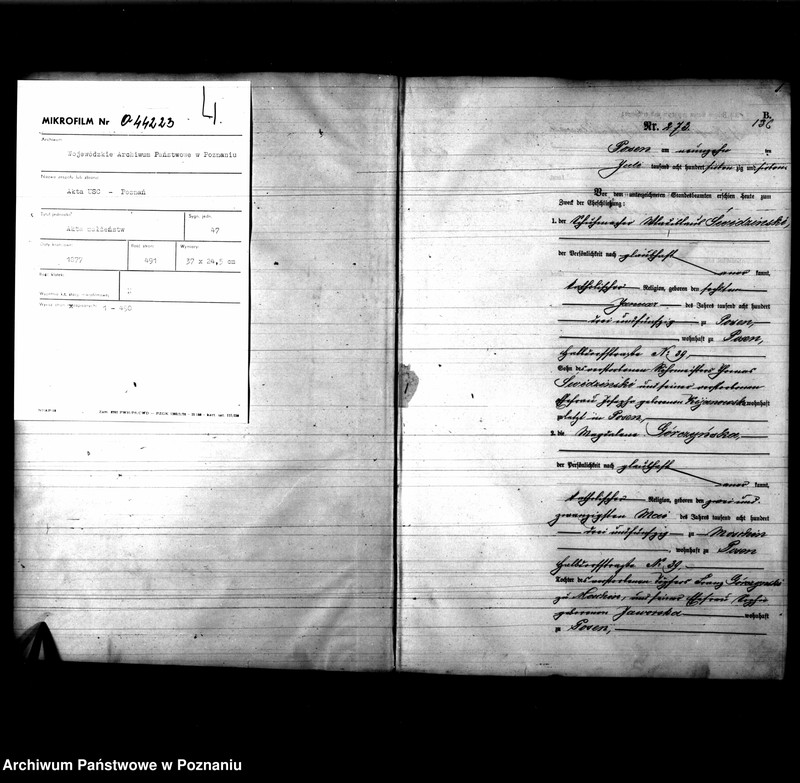 MIKROFILM Nr O 44223
4
Archiwum:
Wojewódzkie Archiwum Państwowe w Poznaniu
Nazwa zespołu lub zbioru:
Akta USC - Poznań
Tytuł jednostki:
Sygn. jedn.
Akta małżeństw
47
Wymiary:
1879
491
37 x 24,5 cm
1 - 490
B.
136
Nr. 272.
Posen am neunzehn ten
Juli tausend acht hundert siebenzig und
Vor dem unterzeichneten Standesbeamten erschien heute zum
Zweck der Eheschließung:
1. der Schuhmacher
der Persönlichkeit nach glaubhaft
aner kannt,
katholischer Religion, geboren den sechsten
Januar des Jahres tausend acht hundert
drei und fünfzig zu Posen,
wohnhaft zu Posen,
Halbdorfstraße Nr. 39,
Sohn des verstorbenen Thomas
und seiner verstorbenen
Ehefrau Josepha geborenen wohnhaft
zuletzt in Posen,
2. die Magdalena Górczyńska,
der Persönlichkeit nach glaubhaft
aner kannt,
katholischer Religion, geboren den zwei und
zwanzigsten Mai des Jahres tausend acht hundert
drei und fünfzig zu Moschin
wohnhaft zu Posen
Halbdorfstraße Nr. 39.
Tochter des verstorbenen Töpfers Franz Górczyński
zu Moschin, und seiner Ehefrau
geborenen Jaworska wohnhaft
zu Posen,
Archiwum Państwowe w Poznaniu